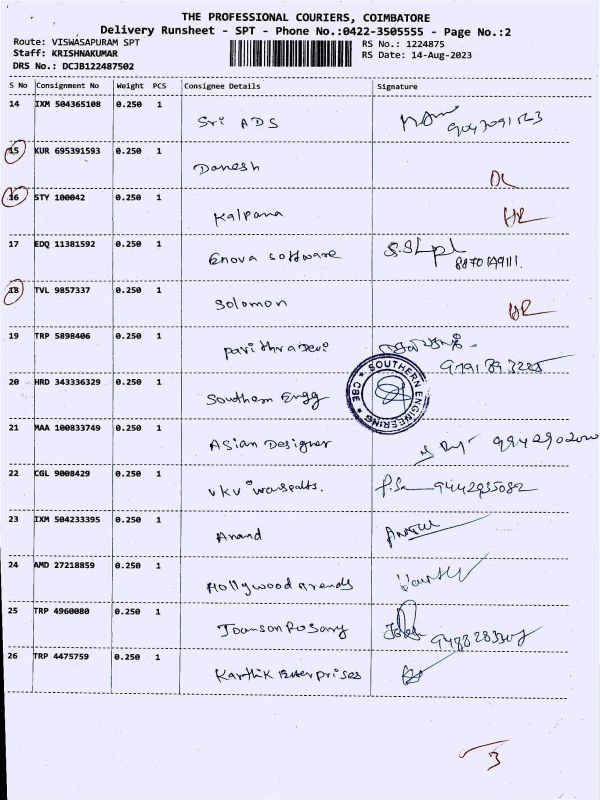 THE PROFESSIONAL COURIERS, COIMBATORE
Delivery Runsheet - SPT - Phone No.:0422-3505555 - Page No.:2
Route: VISWASAPURAM SPT RS No.: 1224875
Staff: KRISHNAKUMAR RS Date: 14-Aug-2023
DRS No.: DCJB122487502
S No Consignment No Weight PCS Consignee Details Signature
14 IXM 504365108 0.250 1
Sri ADS
15 KUR 695391593 0.250 1
Danesh DL
16 STY 100042 0.250 1
Kalpana
17 EDQ 11381592 0.250 1
Enova software
18 TVL 9857337 0.250 1
Solomon
19 TRP 5898406 0.250 1
pavithradevi
20 HRD 343336329 0.250 1
Southern Engg SOUTHERN ENGINEERING CBE
21 MAA 100833749 0.250 1
Asian Designer
22 CGL 9008429 0.250 1
VKV
23 IXM 504233395 0.250 1
Anand
24 AMD 27218859 0.250 1
Hollywood trends
25 TRP 4960080 0.250 1
26 TRP 4475759 0.250 1
Karthik Enterprises
3